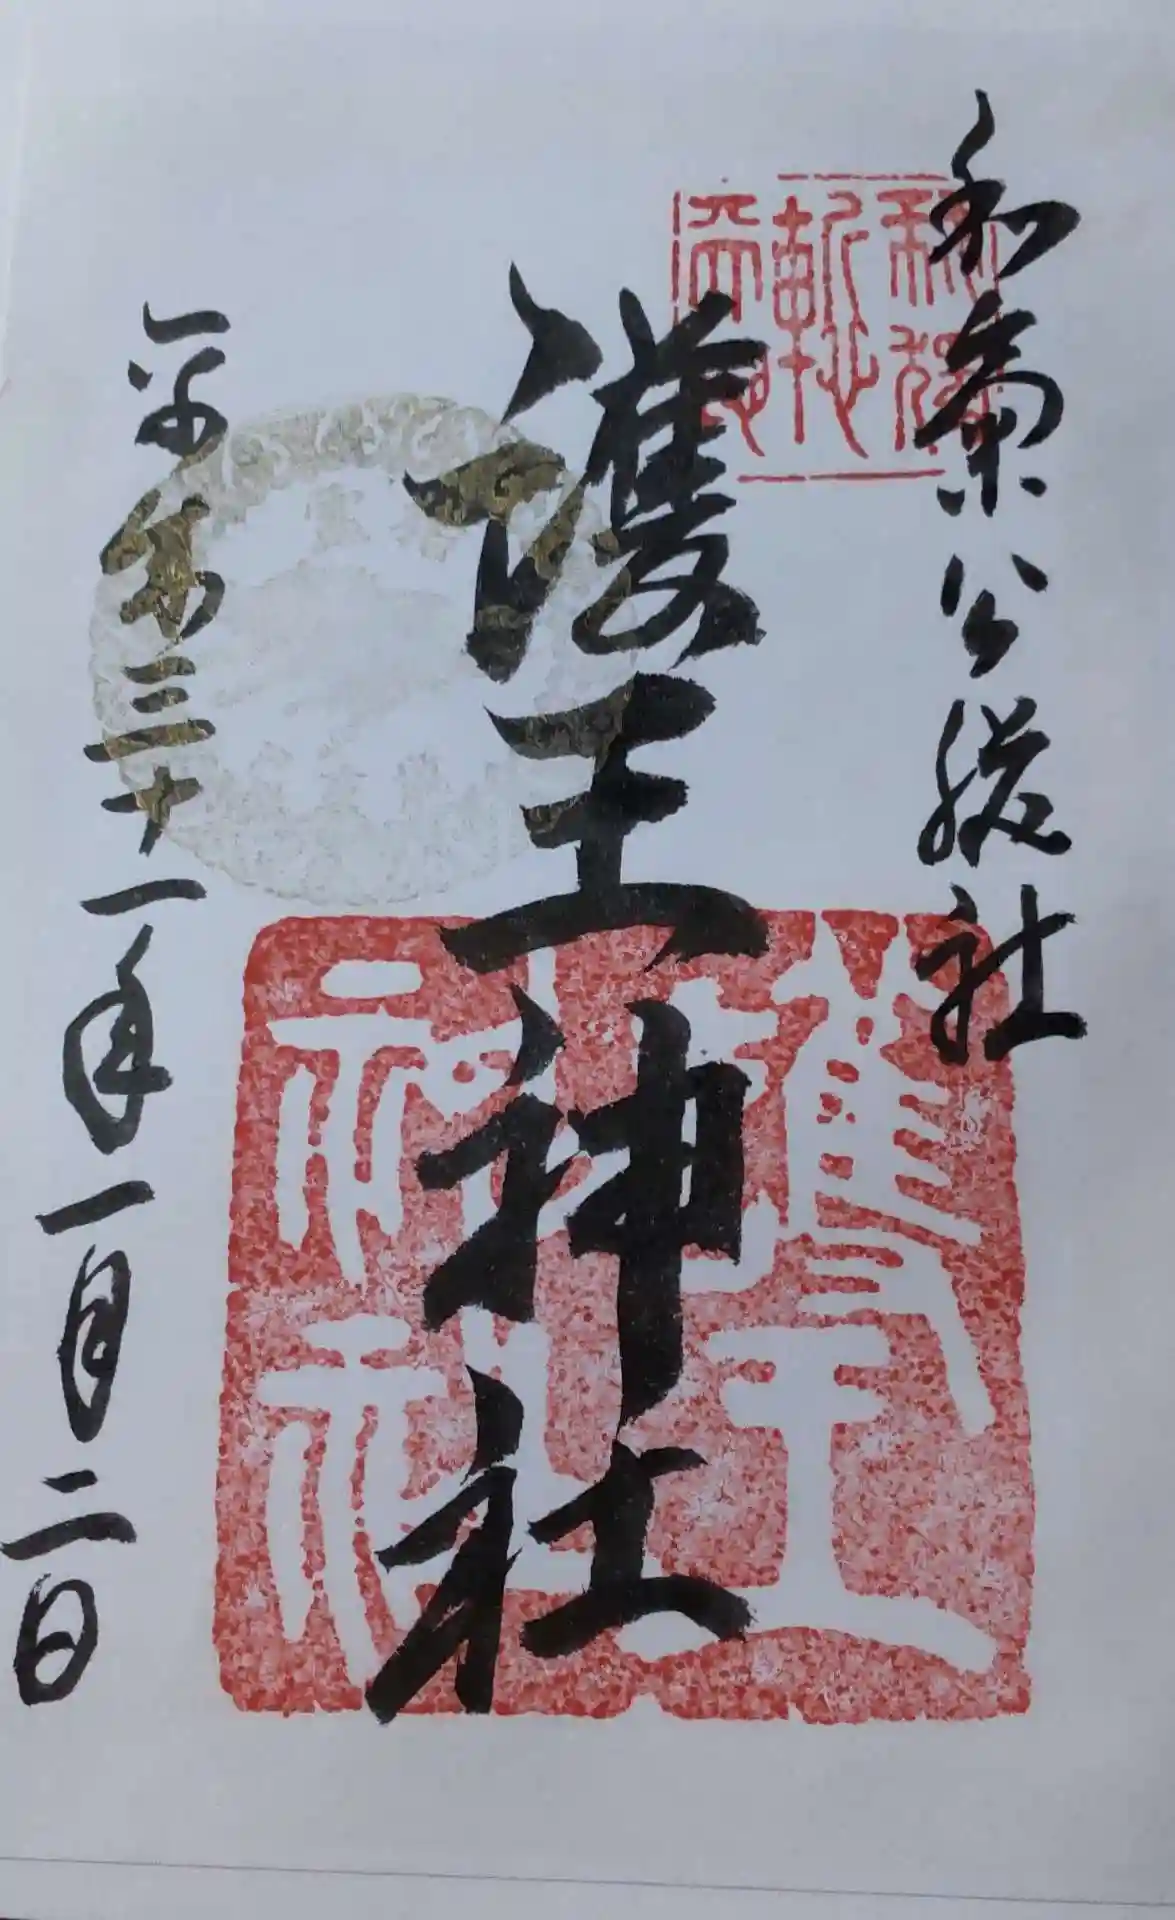 和氣公総社
護王神社
平成三十一年一月二日
護王
神社